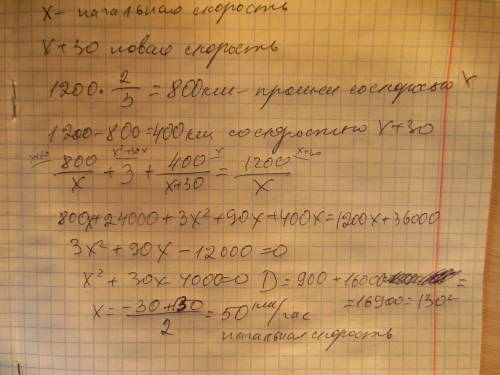 x - начальная скорость
x+30 новая скорость
1200 · 2/3 = 800 км - прошел со скоростью x
1200 - 800 = 400 км со скоростью x+30
x+30 x²+30x x x+30
800/x + 3 + 400/(x+30) = 1200/x
800x + 24000 + 3x² + 90x + 400x = 1200x + 36000
3x² + 90x - 12000 = 0
x² + 30x - 4000 = 0 D = 900 + 16000 =
= 16900 = 130²
x = (-30 + 130)/2 = 50 км/час
начальная скорость